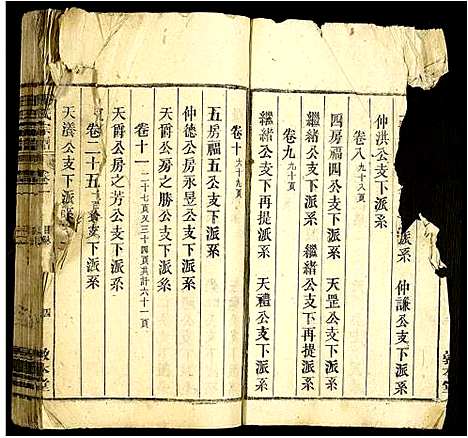 公支下派系
仲洪公支下派系　仲謙公支下派系
卷八 九十八頁
四房福四公支下派系　天罡公支下派系
繼緒公支下派系　繼緒公支下再提派系
卷九 八十一頁
繼緒公支下再提派系　天禮公支下派系
卷十 六十九頁
五房福五公支下派系
仲德公房永昱公支下派系
天爵公房之勝公支下派系
卷十一 二十七頁又三十四頁共計六十一頁
天爵公房之芳公支下派系
卷二十五
天瀁公支下派系
目錄
四
敦本堂